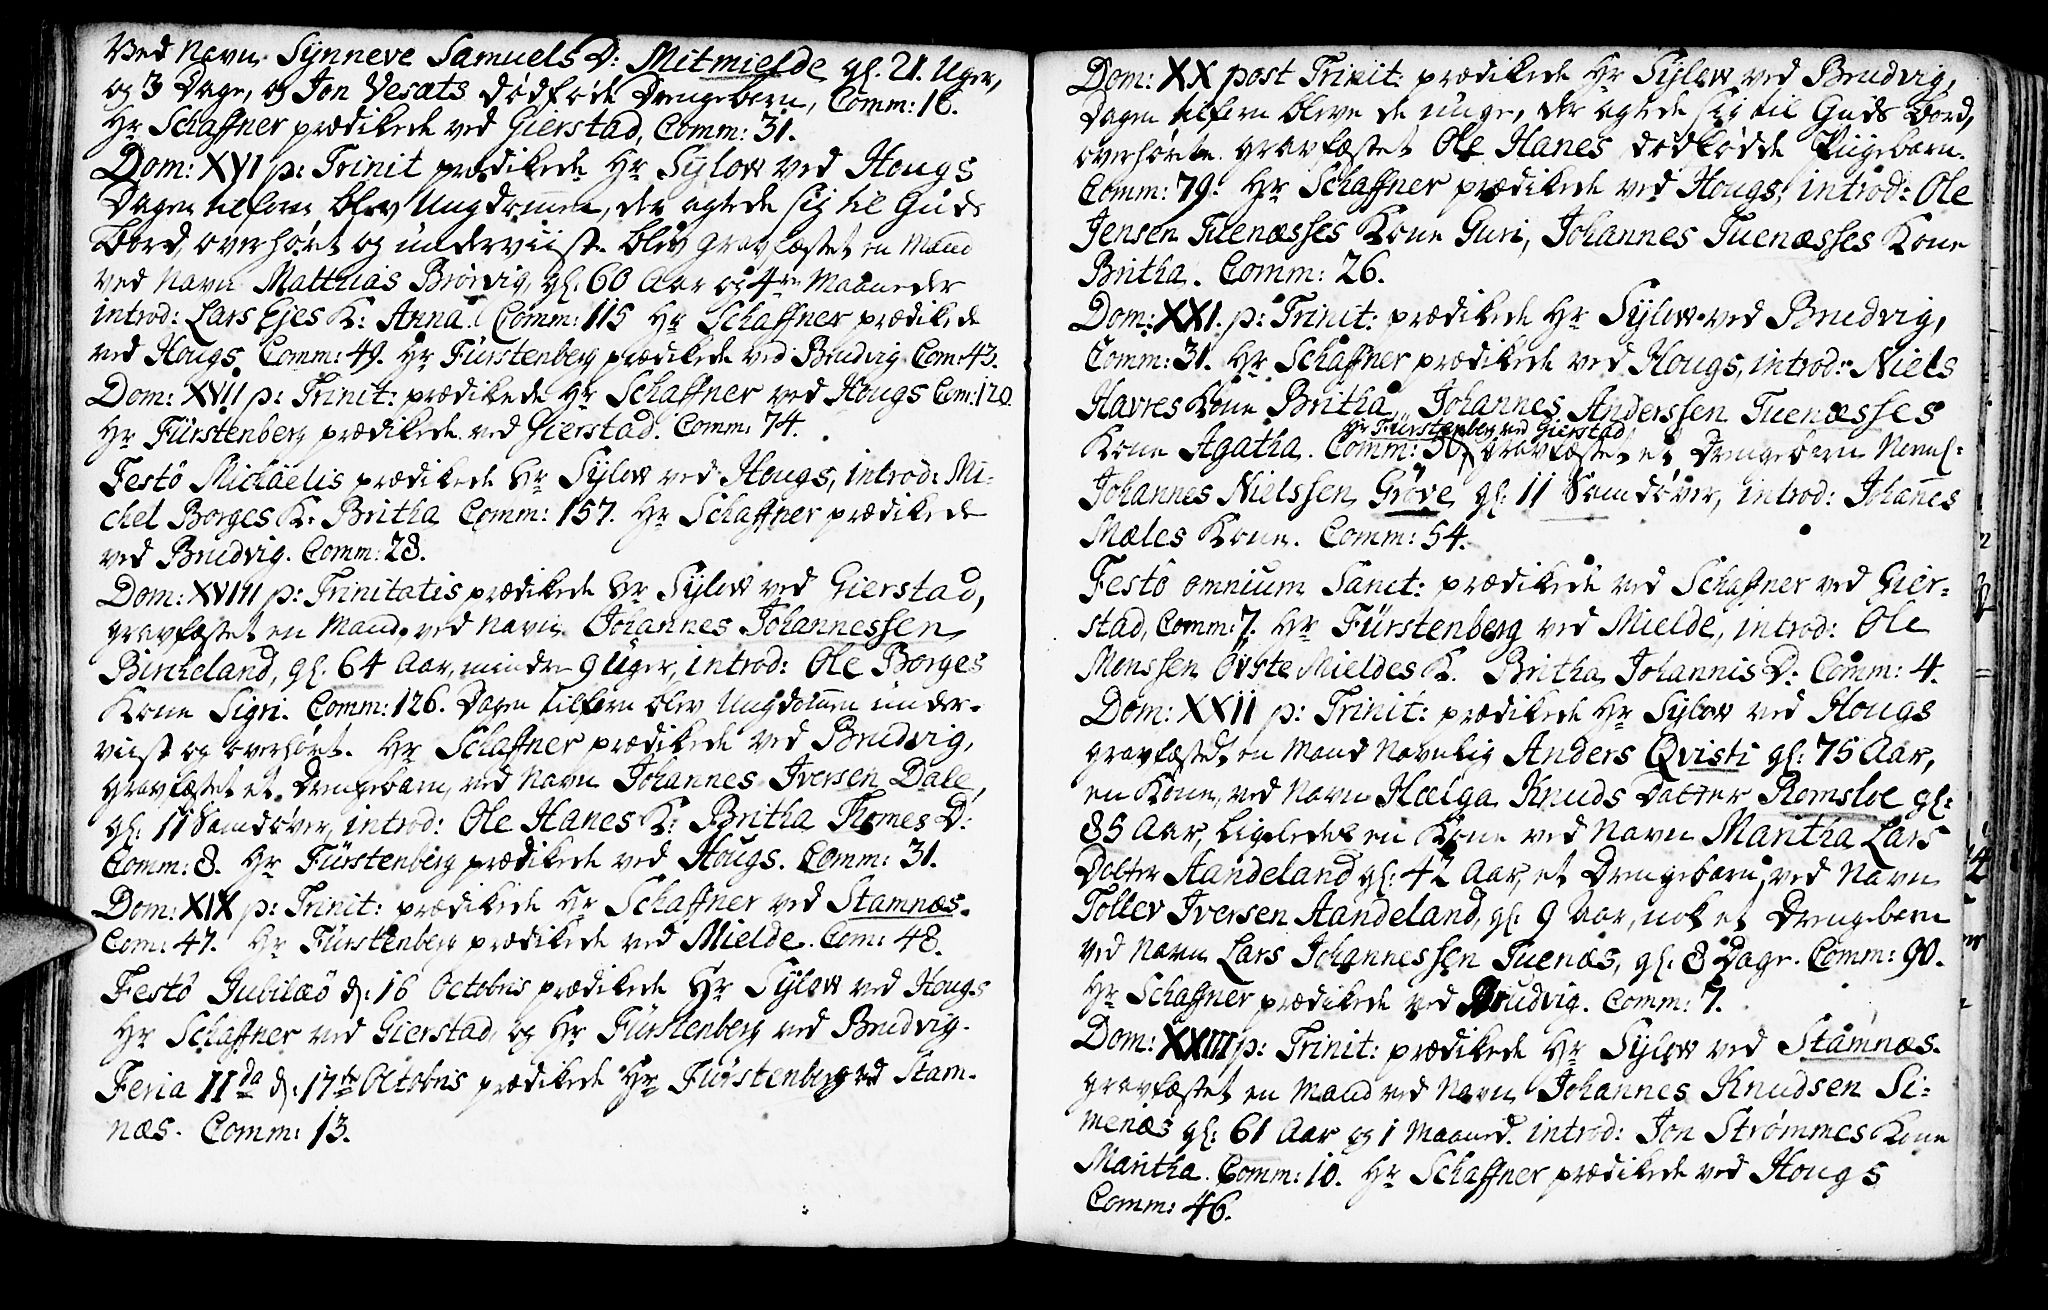 Ved Navn Synneve Samuels D: Mitmielde gl. 21. Uger,
og 3 Dage, og Jon Vesæts dødføde Drengebarn, Comm: 16.
Hr Schaffner prædikede ved Gierstad, Comm: 31.
Dom: XVI p: Trinit prædikede Hr Sylow ved Hougs
Dagen tilforn blev Ungdommen, der agtede sig til Guds
Bord, overhørt og underviist. blev gravfæstet en Mand
ved Navn Matthias Brørvig, gl. 60 Aar og 4re Maaneder
introd: Lars Ejes K: Anna. Comm: 115 Hr Schaffner prædikede
ved Hougs. Comm: 49. Hr Fürstenberg prædikede ved Brudvig Com: 43.
Dom: XVII p: Trinit: prædikede Hr Schaffner ved Hougs Com: 120
Hr Fürstenberg prædikede ved Gierstad. Comm: 74.
Festô Michäelis prædikede Hr Sylow ved Hougs, introd: Mi-
chel Borges K: Britha Comm: 157. Hr Schaffner prædikede
ved Brudvig. Comm: 28.
Dom: XVIII p: Trinitatis prædikede Hr Sylow ved Gierstad,
gravfæstet en Mand, ved Navn Johannes Johannessen
Bircheland, gl. 64 Aar, mindre 9 Uger, introd: Ole Borges
Kone Sigri. Comm: 126. Dagen tilforn blev Ungdommen under-
viist og overhørt. Hr Schaffner prædikede ved Brudvig,
gravfæstet et Drengebarn, ved Navn Johannes Iversen Dale,
gl. 11 Samdøver, introd: Ole Hanes K: Britha Thomes D:
Comm: 8. Hr Fürstenberg prædikede ved Hougs. Comm: 31.
Dom: XIX p: Trinit: prædikede Hr Schaffner ved Stamnæs.
Com: 47. Hr Fürstenberg prædikede ved Mielde. Com: 48.
Festô Jubilæô d: 16 Octobris prædikede Hr Sylow ved Hougs
Hr Schaffner ved Gierstad, og Hr Fürstenberg ved Brudvig.
Feria IIda d: 17de Octobris prædikede Hr Fürstenberg ved Stam-
næs. Comm: 13.
Dom: XX post Trinit: prædikede Hr Sylow ved Brudvig,
Dagen tilforn bleve de unge, der agtede sig til Guds Bord,
overhørte. gravfæstet Ole Hanes dødfødde Piigebarn.
Comm: 79. Hr Schaffner prædikede ved Hougs, introd: Ole
Jensen Tuenæsses Kone Guri, Johannes Tuenæsses Kone
Britha. Comm: 26.
Dom: XXI. p: Trinit: prædikede Hr Sylow ved Brudvig,
Comm: 31. Hr Schaffner prædikede ved Hougs, introd: Niels
Havres Kone Britha, Johannes Anderssen Tuenæsses
Hr Fürstenberg ved Gierstad
Kone Agatha. Comm: 30, gravfæstet et Drengebarn Nevnl:
Johannes Nielssen Grøve gl: 11 Samdøver, introd: Johannes
Mæles Kone. Comm: 54.
Festô omnium Sanct: prædikede ved Schaffner ved Gier-
stad, Comm: 7. Hr Fürstenberg ved Mielde, introd: Ole
Monssen Øvste Mieldes K. Britha Johannis D: Comm: 4.
Dom: XXII p: Trinit: prædikede Hr Sylow ved Hougs
gravfæstet en Mand Navnlig Anders Qvisti gl: 75 Aar,
en Kone, ved Navn Hælga Knuds Datter Romsloe gl:
85 Aar, ligeledes en Kone ved Navn Maritha Lars
Dotter Aandeland gl: 42 Aar, et Drengebarn, ved Navn
Tollev Iversen Aandeland, gl: 9 Aar, nok et Drengebarn
ved Navn Lars Johannessen Tuenæs, gl: 8 Dage. Comm: 90.
Hr Schaffner prædikede ved Brudvig. Comm: 7.
Dom: XXIII p: Trinit: prædikede Hr Sylow ved Stamnæs.
gravfæstet en Mand ved Navn Johannes Knudsen Si-
menæs gl: 61 Aar og 1 Maaned. introd: Jon Strømmes Kone
Maritha. Comm: 10. Hr Schaffner prædikede ved Hougs
Comm: 46.